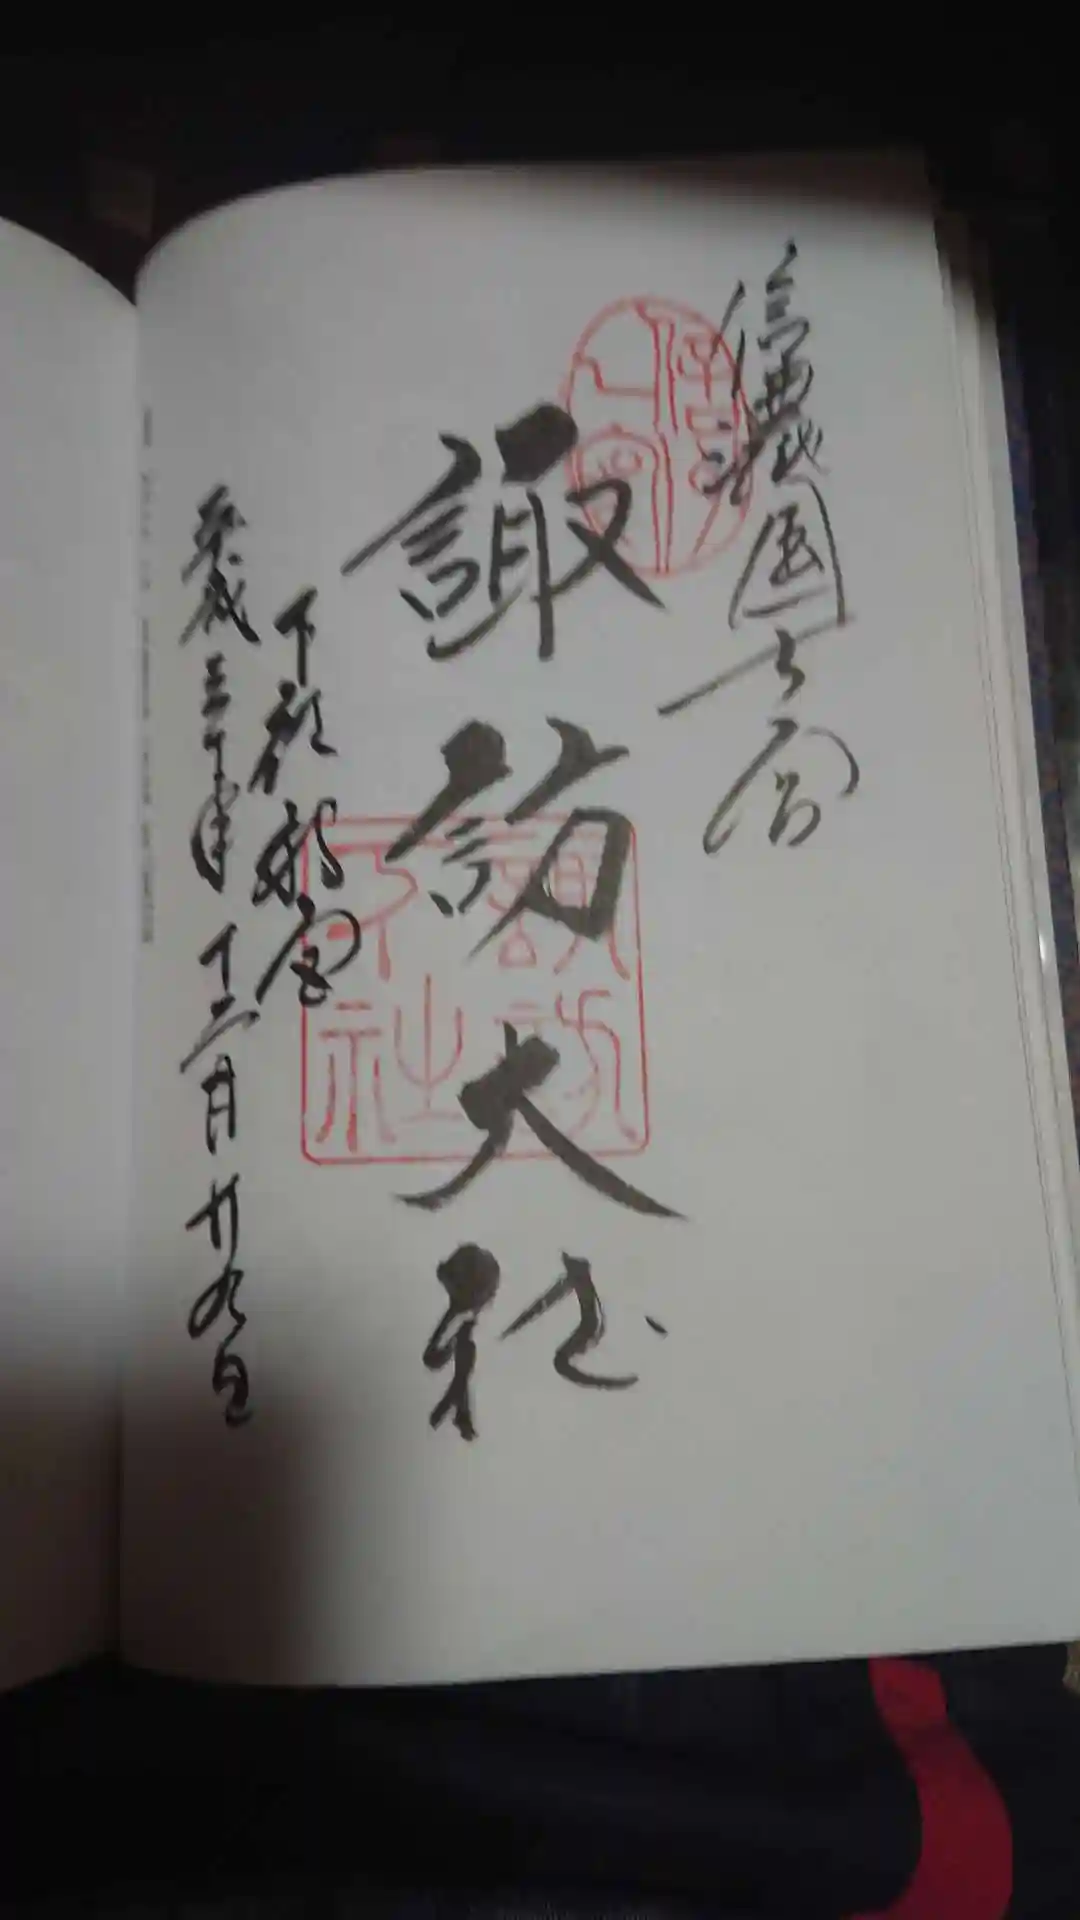 信濃國一宮
諏訪大社
下社秋宮
平成三十年十二月廿九日
信濃國
一之宮
諏訪
下社